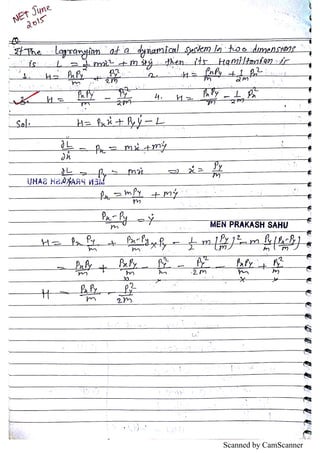 NET June
2015
If The lagrangian of a dynamical system in two dimensions
is L = ½mẋ² + mẋẏ then its Hamiltonian is
1. H = PxPy/m + Py²/2m 2. H = PxPy/m + 1/2m Px²
3. H = PxPy/m - Py²/2m 4. H = PxPy/m - 1/2m Px²
Sol. H = Pxẋ + Pyẏ - L
∂L/∂ẋ = Px = mẋ + mẏ
∂L/∂ẏ = Py = mẋ ⇒ ẋ = Py/m
MEN PRAKASH SAHU
Px = mPy/m + mẏ
Px-Py/m = ẏ
MEN PRAKASH SAHU
H = Px Py/m + Px-Py/m × Py - ½ m [Py/m]² - m Py/m [Px-Py/m]
= PxPy/m + PxPy/m - Py²/m - Py²/2m - PxPy/m + Py²/m
H = PxPy/m - Py²/2m
Scanned by CamScanner